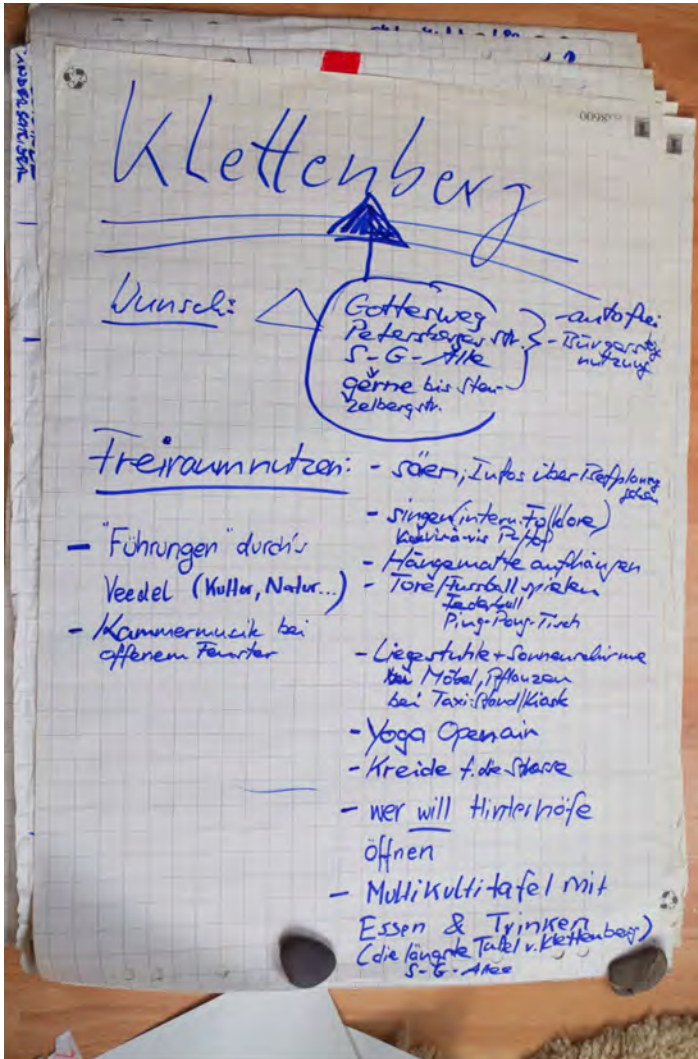 Klettenberg
Wunsch:
Gottesweg
Petersberger Str.
S-G-Alle
gerne bis Sten-
zelbergstr.
- autofrei
- Bürgersteig
nutzung
Freiraum nutzen:
- "Führungen" durch's
Veedel (Kultur, Natur...)
- Kammermusik bei
offenem Fenster
- säen, Infos über Bepflanzung
- singen (intern. Folklore)
- Hängematte aufhängen
- Tore/Fussball spielen
Federball
Ping-Pong-Tisch
- Liegestühle + Sonnenschirme
Möbel, Pflanzen
bei Taxi-Stand/Kiosk
- Yoga Openair
- Kreide f. die Strasse
- wer will Hinterhöfe
öffnen
- Multikultitafel mit
Essen & Trinken
(die längste Tafel v. Klettenberg)
S-G-Allee